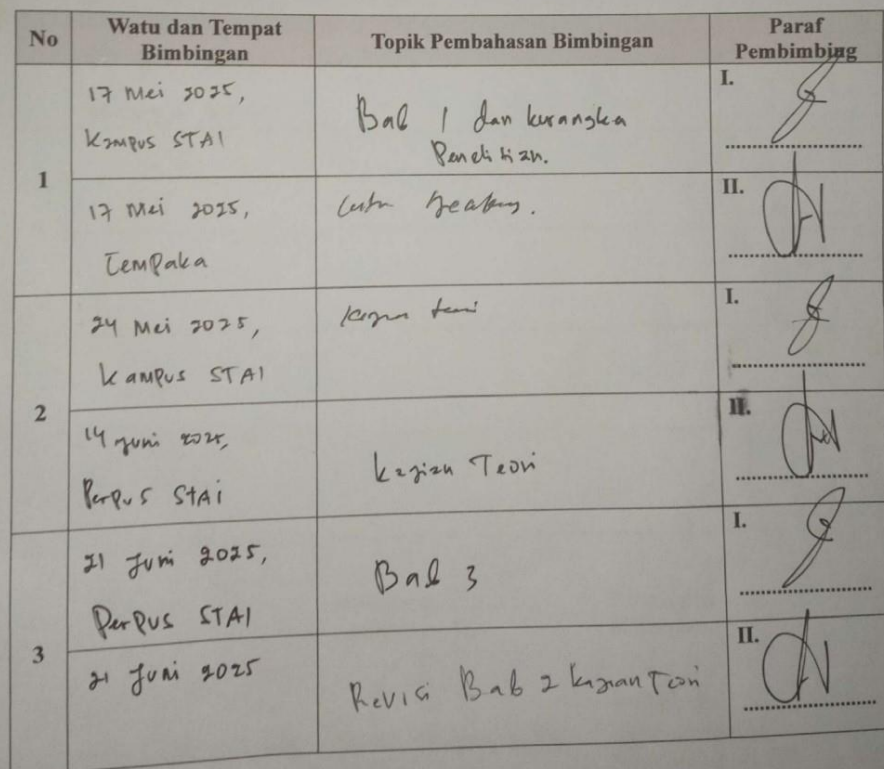 No
Watu dan Tempat
Bimbingan
Topik Pembahasan Bimbingan
Paraf
Pembimbing
1
17 Mei 2025,
Kampus STAI
Bab 1 dan kurangka
Penelitian.
I.
17 Mei 2025,
Cempaka
II.
2
24 Mei 2025,
Kampus STAI
Kajian teori
I.
14 Juni 2025,
Perpus STAI
Kajian Teori
II.
3
21 Juni 2025,
Perpus STAI
Bab 3
I.
21 Juni 2025
Revisi Bab 2 Kajian Teori
II.